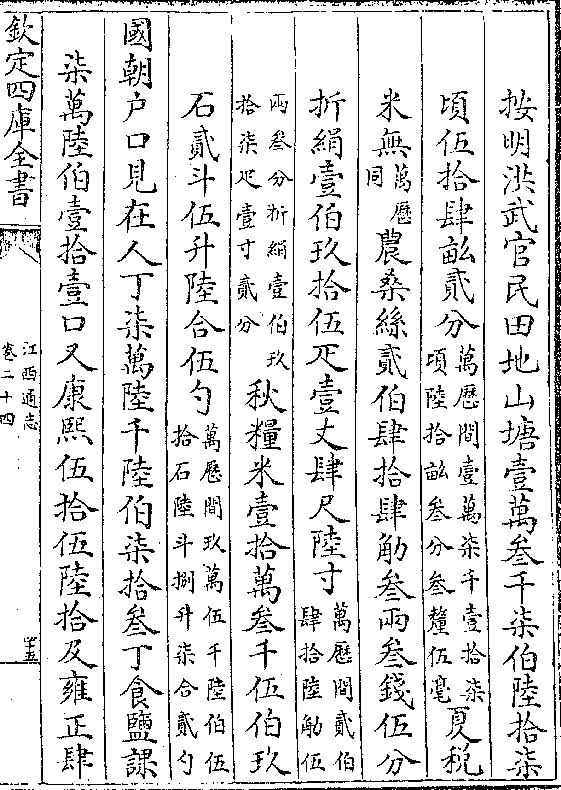 按明洪武官民田地山塘壹萬叁千柒伯陸拾柒
頃伍拾肆畝貳分萬厯間壹萬柒千壹拾柒頃陸拾畝叁分叁釐伍毫夏稅
米無萬厯同農桑絲貳伯肆拾肆觔叁兩叁錢伍分
折絹壹伯玖拾伍疋壹丈肆尺陸寸萬厯間貳伯肆拾陸觔伍
兩叁分折絹壹伯玖拾柒疋壹寸貳分秋糧米壹拾萬叁千伍伯玖
石貳斗伍升陸合伍勺萬厯間玖萬伍千陸伯伍拾石陸斗捌升柒合貳勺
國朝户口見在人丁柒萬陸千陸伯柒拾叁丁食鹽課
柒萬陸伯壹拾壹口又康熙伍拾伍陸拾及雍正肆
欽定四庫全書
江西通志
卷二十四